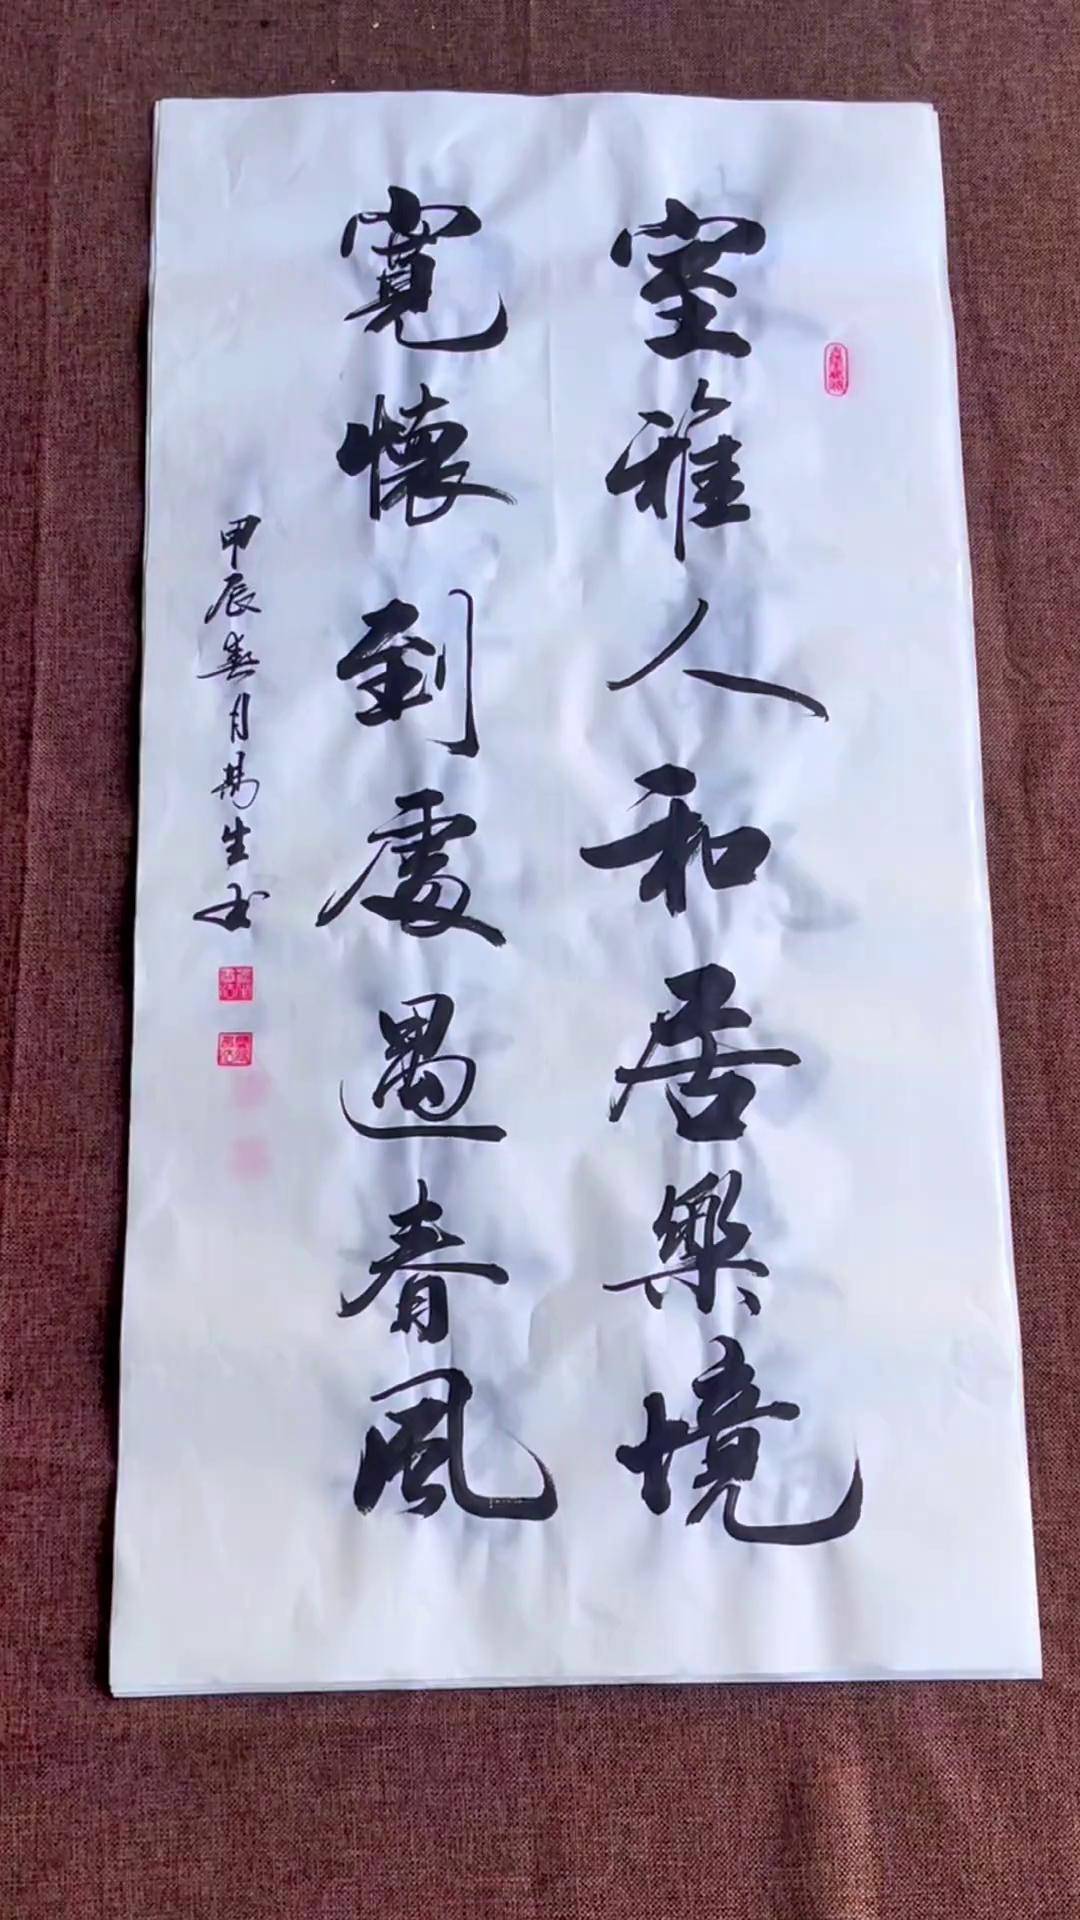 室雅人和居樂境
寬懷到處遇春風
甲辰春月
生书